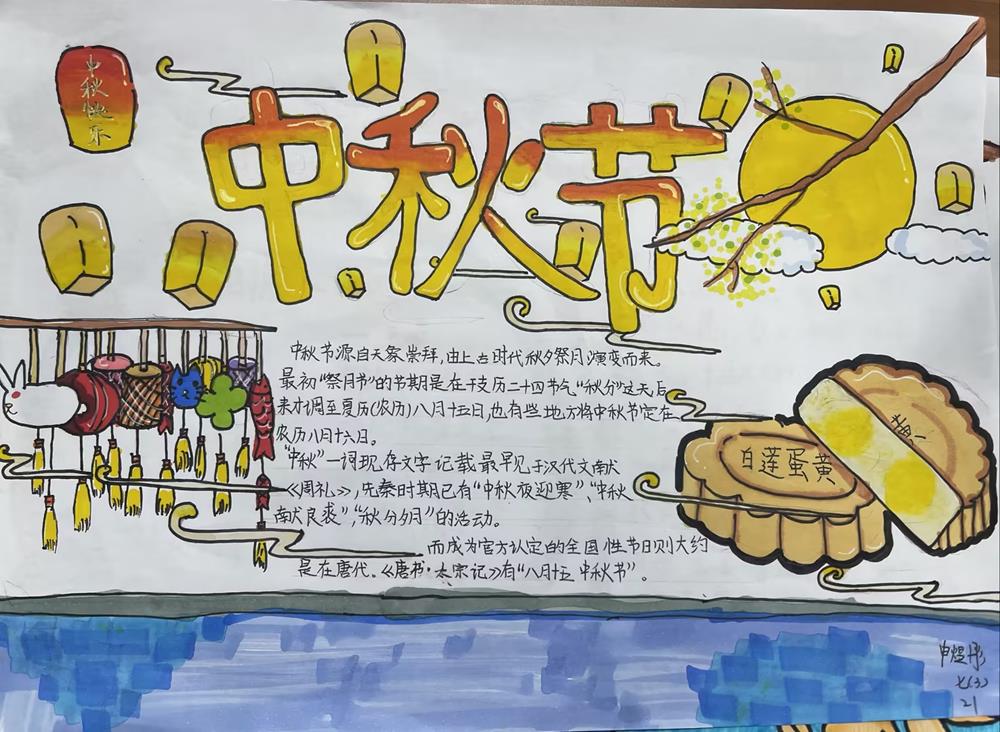 中秋快乐
中秋节
中秋节源自天象崇拜，由上古时代秋夕祭月演变而来。
最初“祭月节”的节期是在干支历二十四节气“秋分”这天，后
来才调至夏历(农历)八月十五日，也有些地方将中秋节定在
农历八月十六日。
“中秋”一词现存文字记载最早见于汉代文献
《周礼》，先秦时期已有“中秋夜迎寒”、“中秋
献良裘”，“秋分夕月”的活动。
而成为官方认定的全国性节日则大约
是在唐代。《唐书·太宗记》有“八月十五中秋节”。
白莲蛋黄
黄
申煜彤
七(3)
21